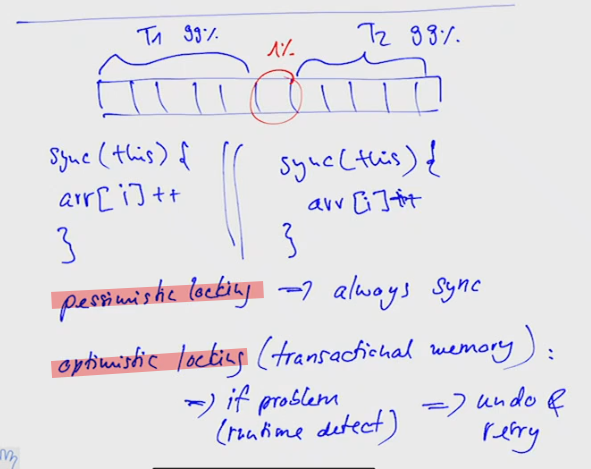 T1 99%
1%
T2 99%
sync(this) {
arr[i]++
}
sync(this) {
arr[i]++
}
pessimistic locking => always sync
optimistic locking (transactional memory):
=> if problem
(runtime detect)
=> undo &
retry